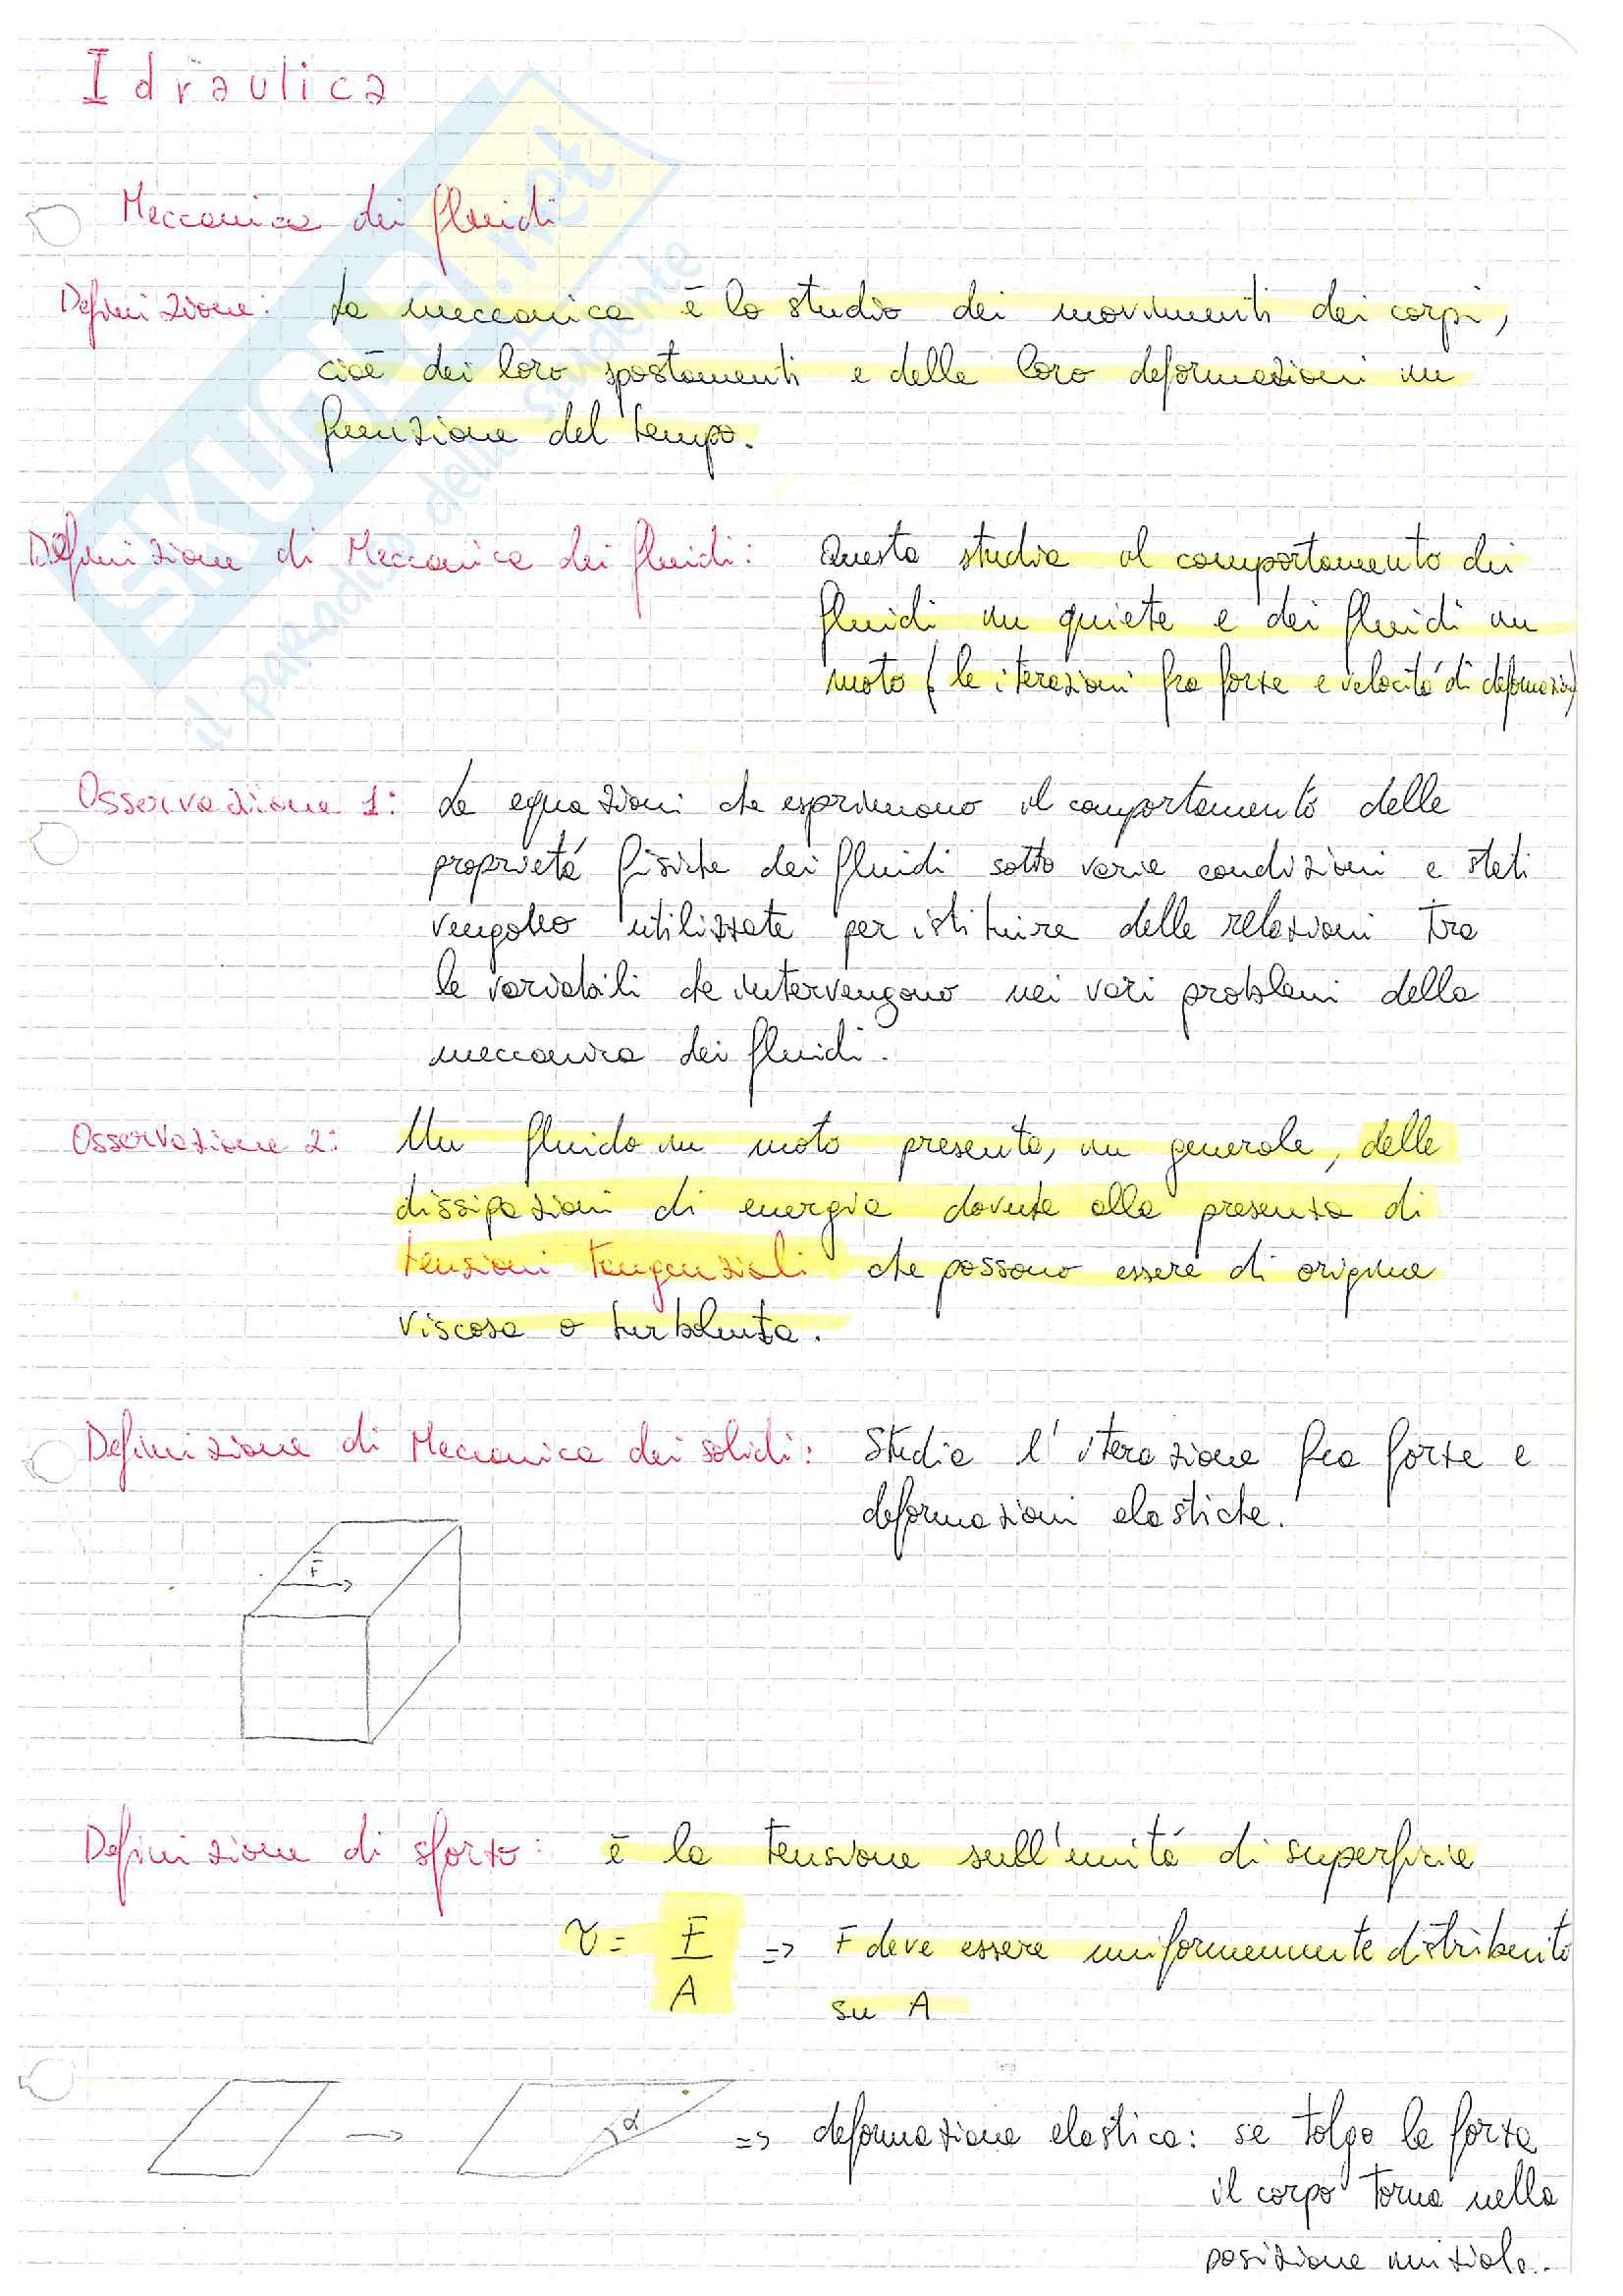 Idraulica
Meccanica dei fluidi
Definizione: La meccanica è lo studio dei movimenti dei corpi,
cioè dei loro spostamenti e delle loro deformazioni in
funzione del tempo.
Definizione di Meccanica dei fluidi: Questa studia il comportamento dei
fluidi in quiete e dei fluidi in
moto (le iterazioni fra forze e velocitá di deformazion)
Osservazione 1: Le equazioni che esprimono il comportamento delle
proprietá fisiche dei fluidi sotto varie condizioni e stati
vengono utilizzate per istituire delle relazioni tra
le variabili che intervengono nei vari problemi della
meccanica dei fluidi.
Osservazione 2: Un fluido in moto presenta, in generale, delle
dissipazioni di energia dovute alla presenza di
tensioni tangenziali che possono essere di origine
viscosa o turbolenta.
Definizione di Meccanica dei solidi: Studia l'iterazione fra forze e
deformazioni elastiche.
F
Definizione di sforzo: è la tensione sull'unitá di superficie
τ = F/A => F deve essere uniformemente distribuito
su A
α
=> deformazione elastica: se tolgo la forza
il corpo torna nella
posizione iniziale.
SKUOLA.net
il paradiso dello studente